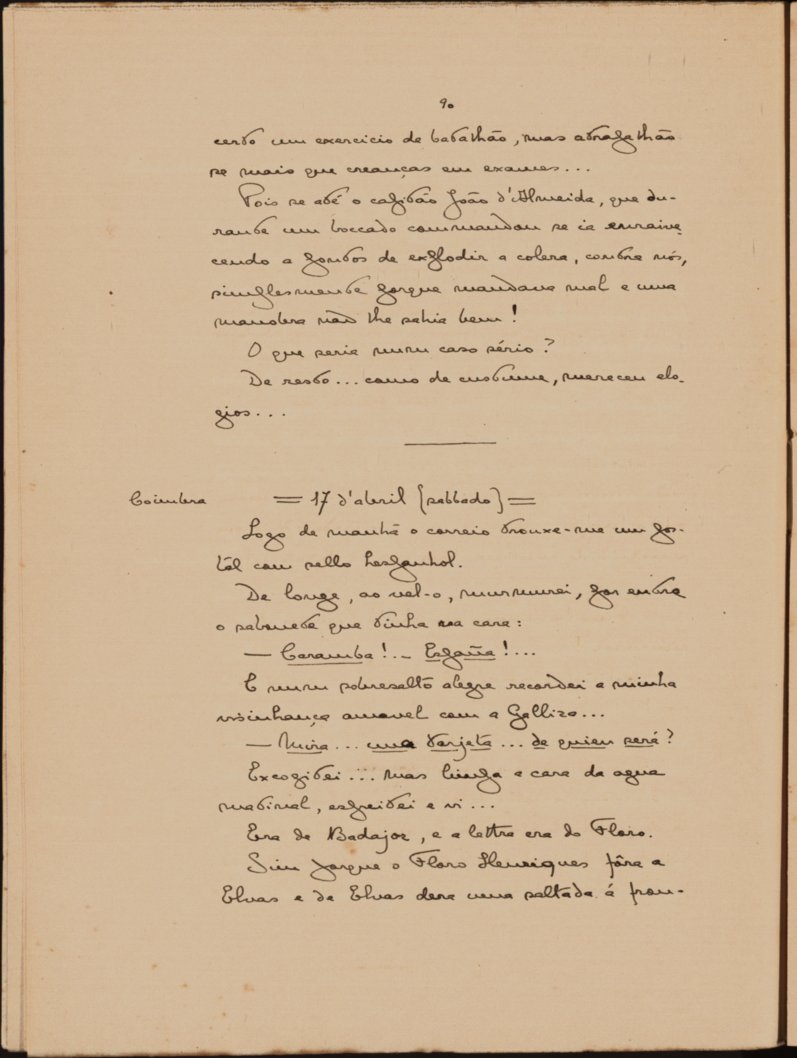 90
cerdo um exercicio de batalhão, mas atrapalhão
se mais que creanças em exames...
Pois se até o capitão João d'Almeida, que du-
rante um boccado commandou se ia enraive
cendo a pontos de explodir a colera, contra nós,
simplesmente porque mandava mal e uma
manobra não lhe sahia bem!
O que seria num caso sério?
De resto... como de custume, mereceu elo-
gios...
Coimbra = 17 d'abril (sabbado) =
Logo de manhã o correio trouxe-me um pos-
tal com sello hespanhol.
De longe, ao vel-o, murmurei, por entre
o sabonete que tinha na cara:
— Caramba! — España!...
E num sobresalto alegre recordei a minha
visinhança amavel com a Galliza...
— Mira... una tarjeta... de quien será?
Excogitei... mas limpa a cara da agua
matinal, espreitei e vi...
Era de Badajoz, e a lettra era do Floro.
Sim porque o Floro Henriques fôra a
Elvas e de Elvas dera uma saltada á fron-